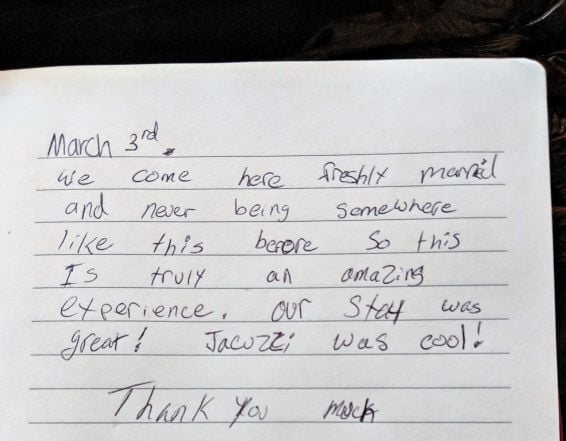 March 3rd.
We come here freshly married
and never being somewhere
like this before so this
Is truly an amazing
experience. our stay was
great! Jacuzzi was cool!
Thank you much